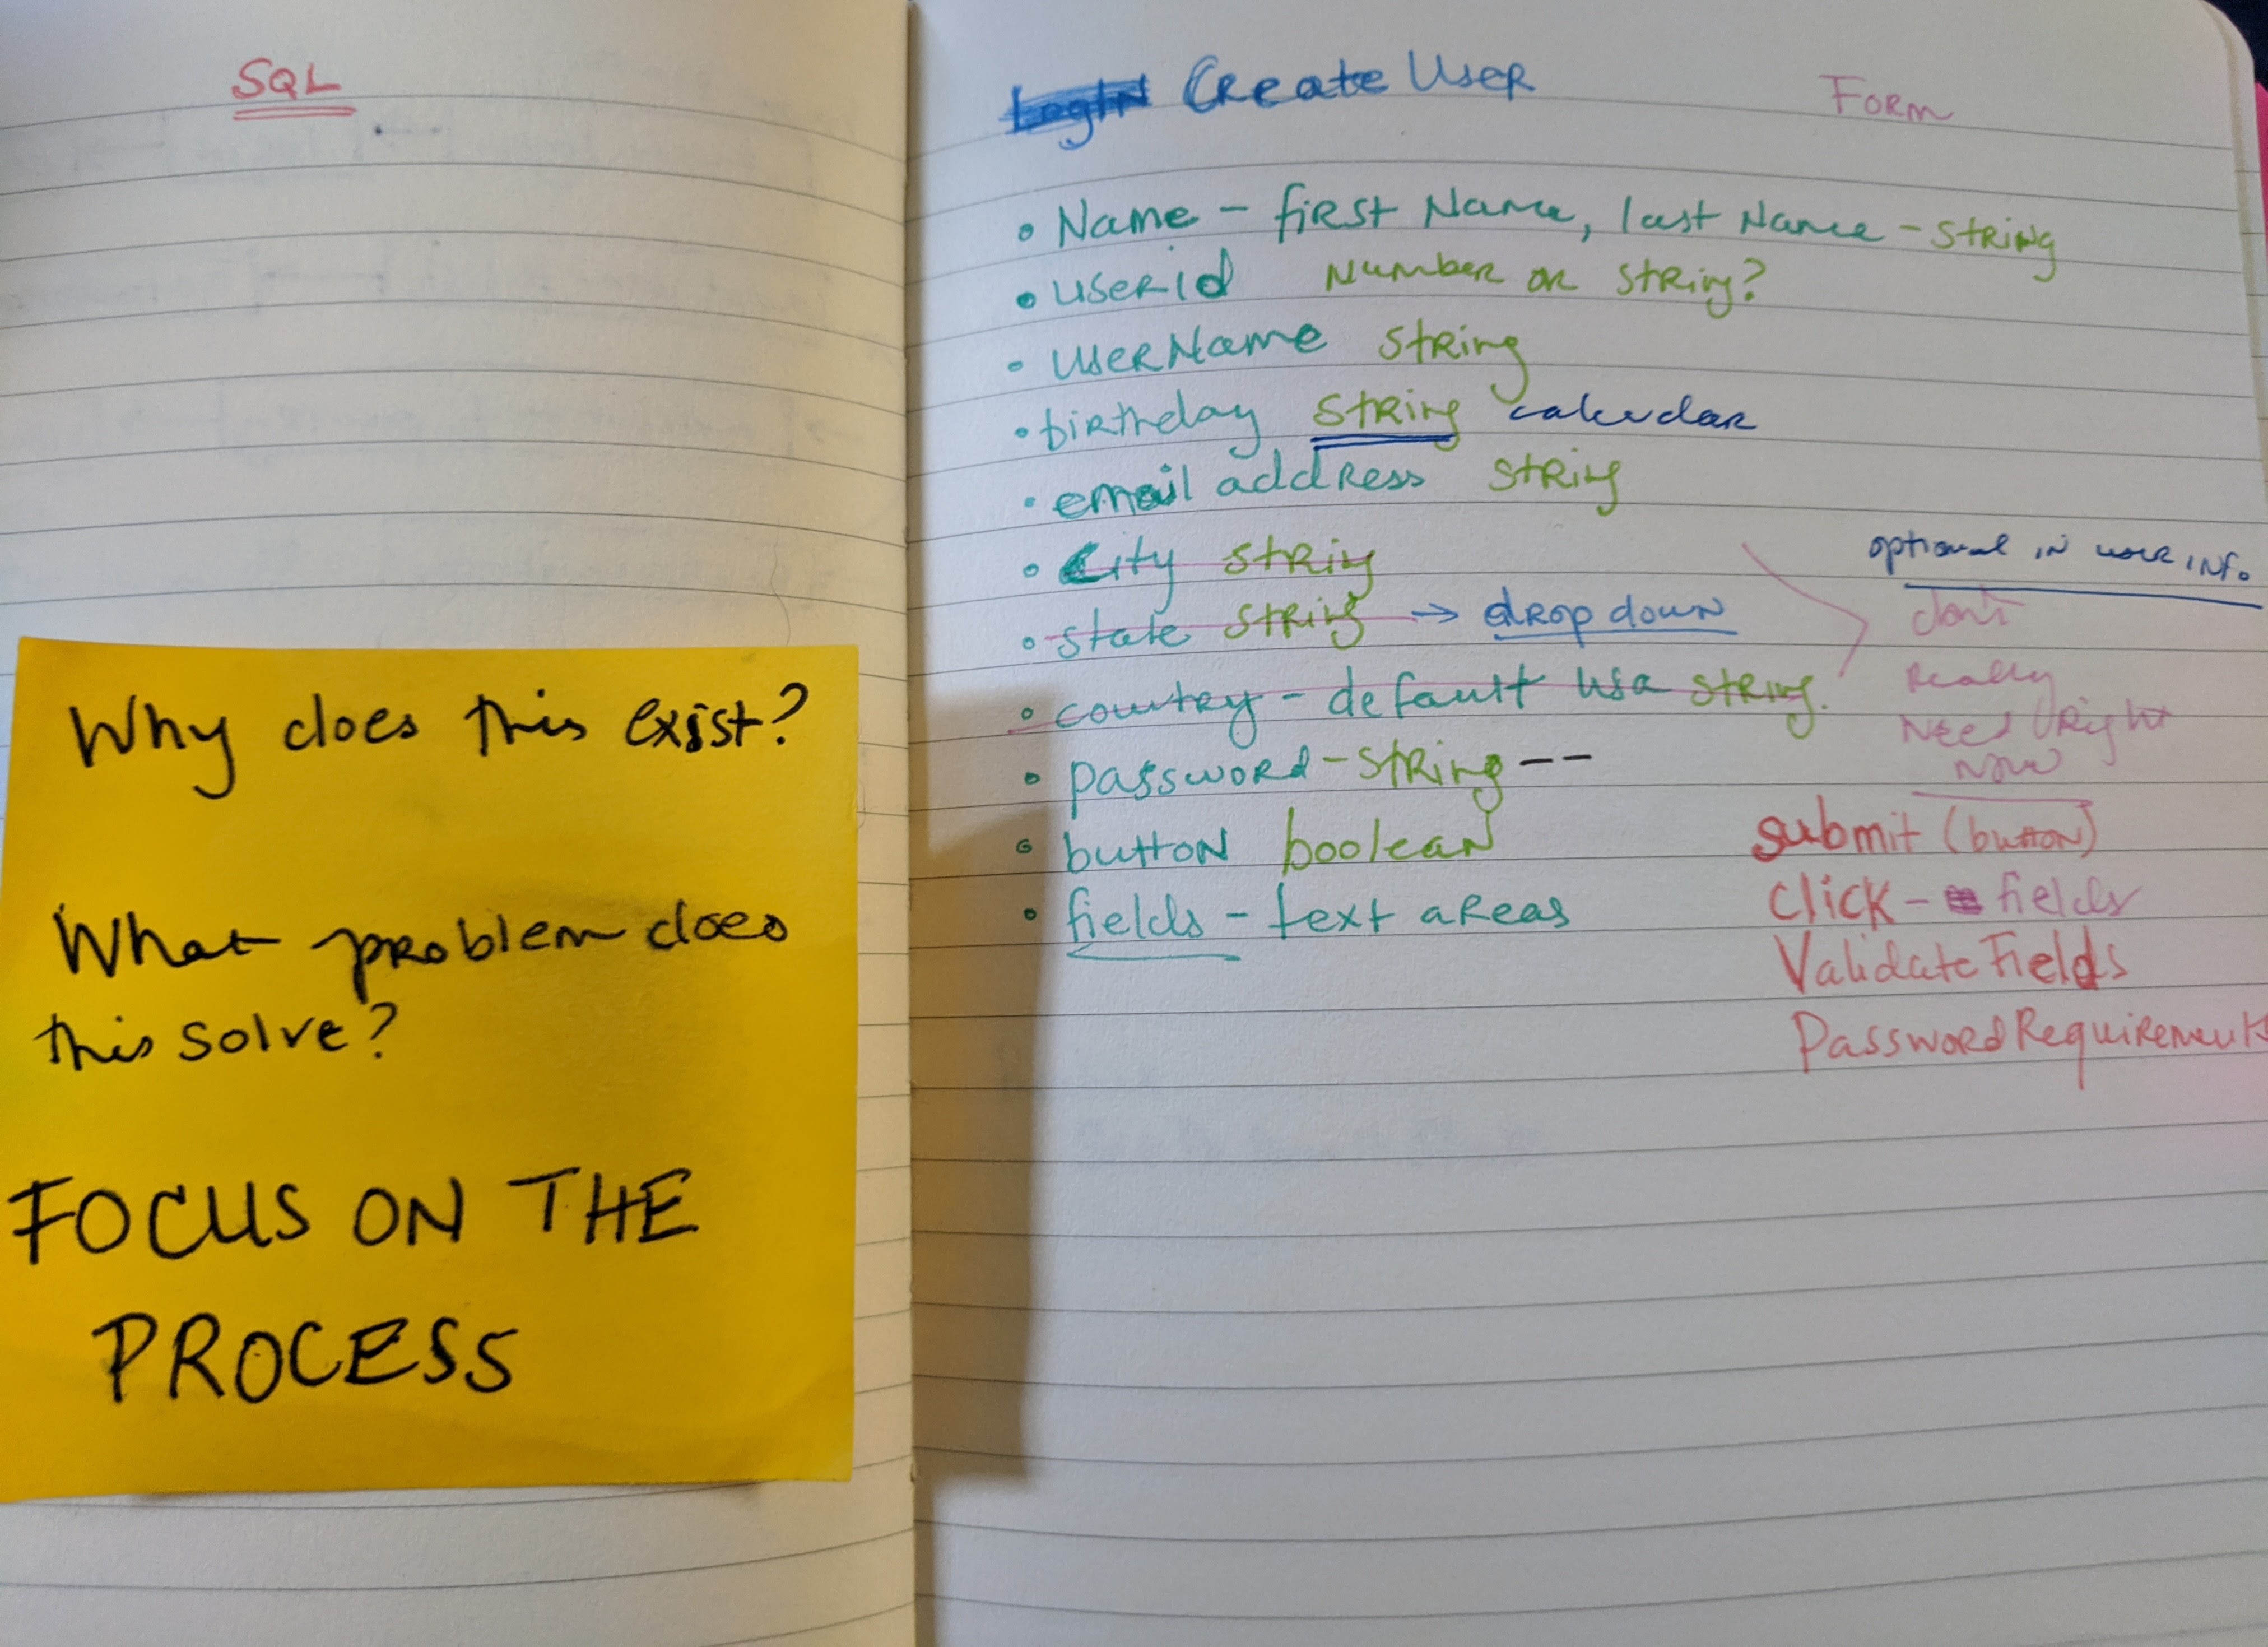 SQL
Why does this exist?
What problem does
this solve?
FOCUS ON THE
PROCESS
LogIN Create User
Form
• Name - first Name, last Name - string
• userid Number or string?
• userName string
• birthday string calendar
• email address string
• City string
• state string → drop down
• country - default usa string.
• password - string --
• button boolean
• fields - text areas
optional in user info.
don't
Really
Need Right
Now
submit (button)
click - fields
Validate Fields
Password Requirements